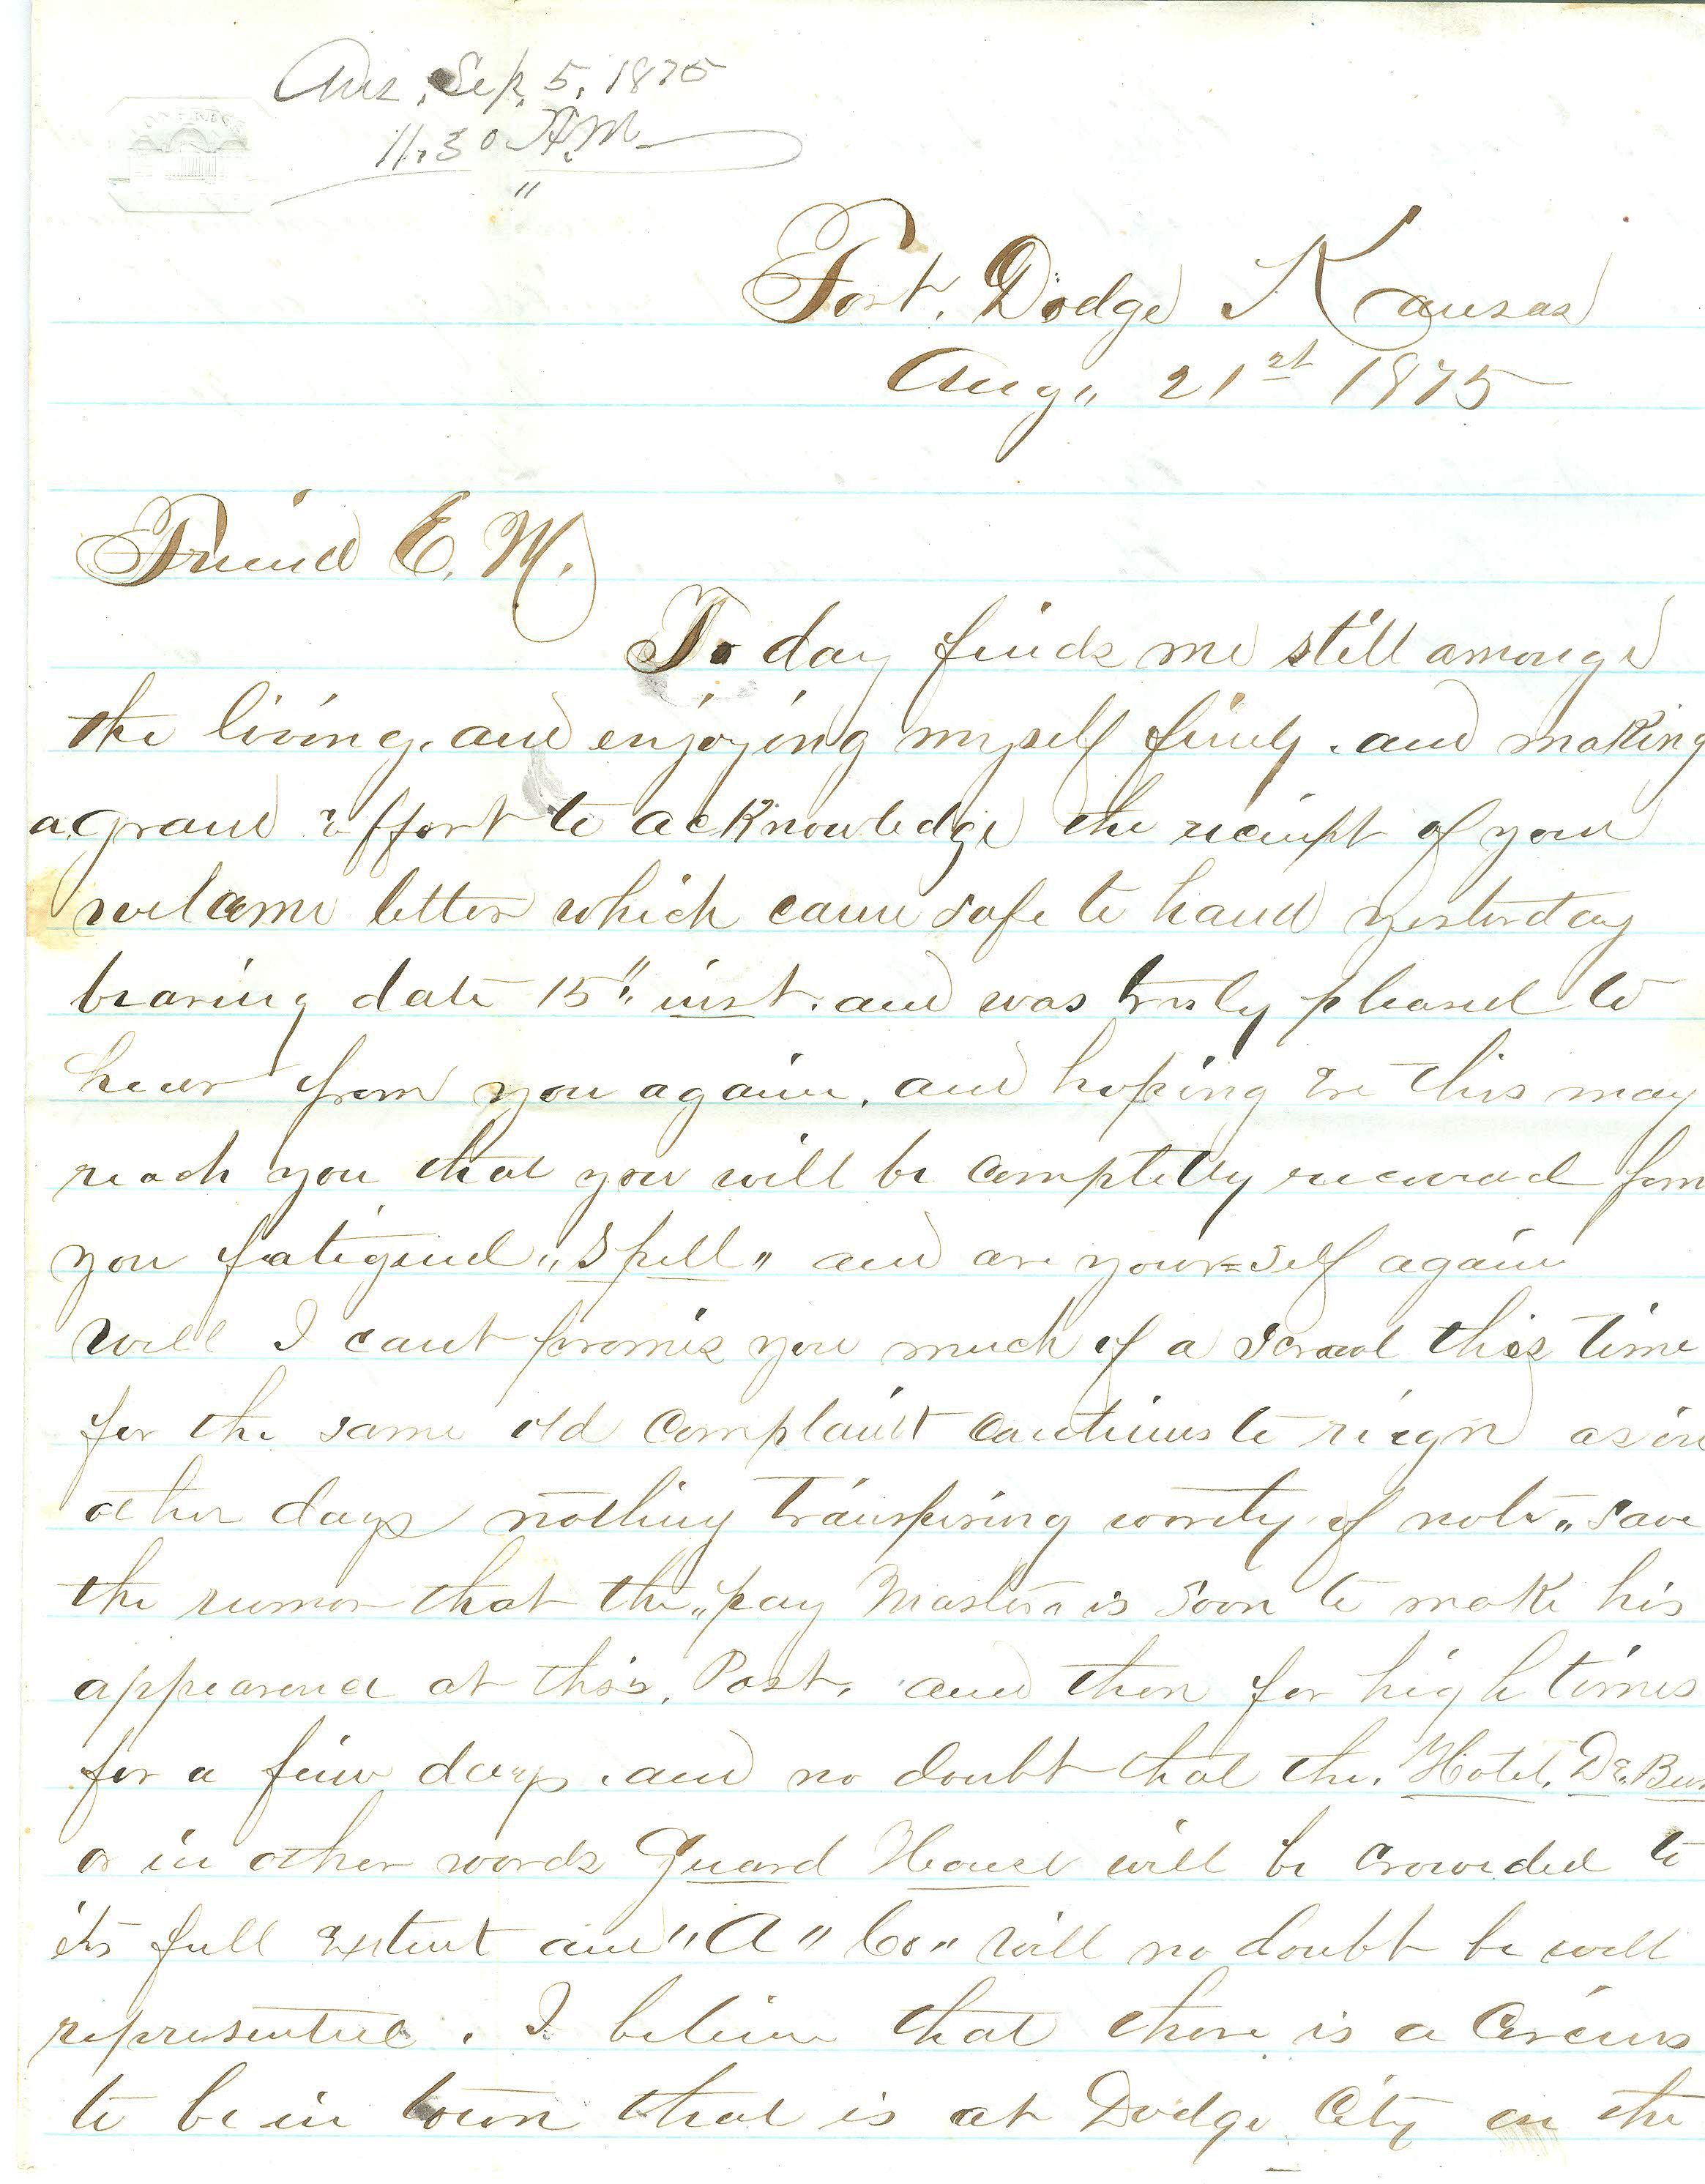 Ans. Sep. 5, 1875
11.30 A.M.
"
Fort. Dodge Kansas
Aug,, 21st 1875
Friend E. M.
To day finds me still amonge
the living, and enjoying myself finely. and making
a grand effort to acknowledge the reciept of your
welcome letter which came safe to hand yesterday
bearing date 15" inst. and was truly pleased to
hear from you again, and hoping ere this may
reach you that you will be completly recovered from
you fatigued ,,Spell" and are your=self again
Well I cant promis you much of a scrawl this time
for the same old Complaint Continues to reign as in
other days nothing transpiring worthy of note ,, save
the rumor that the ,,pay Master,, is soon to make his
appearence at this, Post, and then for high times
for a few days. and no doubt that the. Hotel. De.
or in other words Guard House will be Crowded to
its full extent and "A" Co" will no doubt be well
represented. I believe that there is a Circus
to be in town that is at Dodge City on the